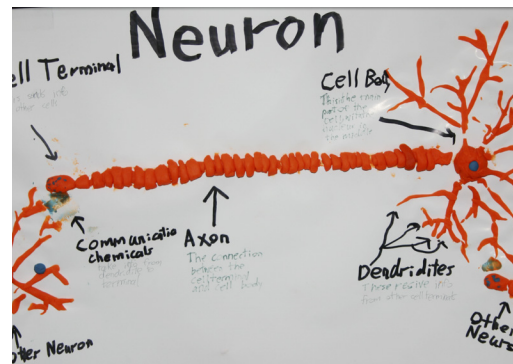 Neuron
ell Terminal
Cell Body
This the main
part of the
Communicatio
chemicals
Axon
The connection
between the
cell terminal
and cell body
Dendridites
These recive info
from other cell terminals
other Neuron
Other
Neuro